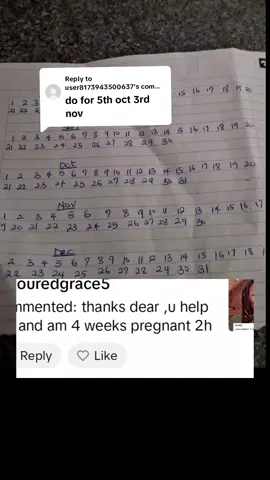 Reply to
user8173943500637's com...
do for 5th oct 3rd
nov
1 2 3 15 16 17 18 19 20
21 22
1 2 3 4 5 6 7 8 9 10 11 12 13 14 15 16 17 18 19 20
21 22 23 24 25 26 27 28 29 30
Oct
1 2 3 4 5 6 7 8 9 10 11 12 13 14 15 16 17 18 19 20
21 22 23 24 25 26 27 28 29 30 31
Nov
1 2 3 4 5 6 7 8 9 10 11 12 13 14 15 16 17
19 20 21 22 23 24 25 26 27 28 29 30
Dec
2 3 4 5 6 7 8 9 10 11 12 13 14 15 16 17 18
22 23 24 25 26 27 28 29 30 31
ouredgrace5
nmented: thanks dear ,u help
and am 4 weeks pregnant 2h
Reply Like